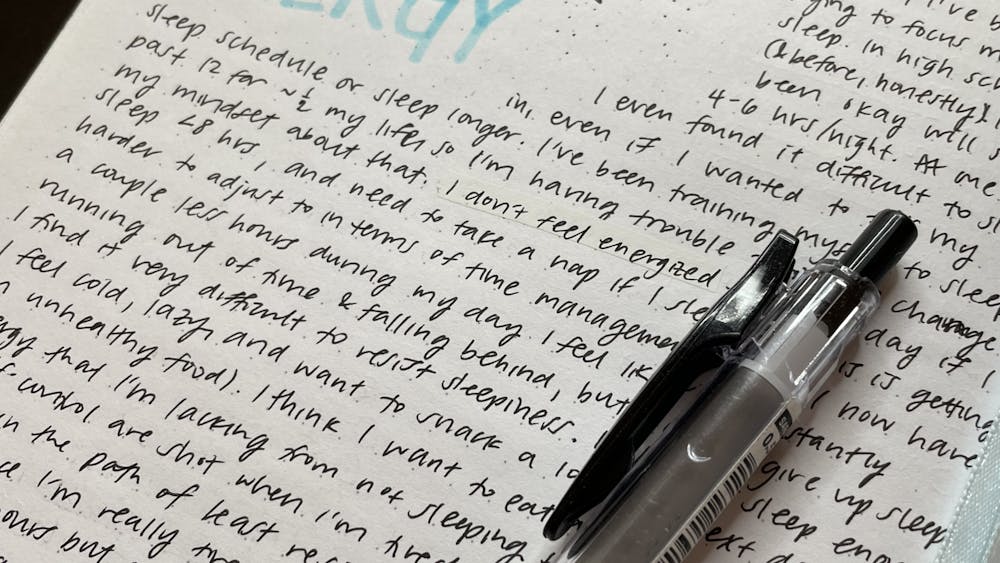 ERGY
I've b
ying to focus m
sleep. In high sch
(& before, honestly) I
been okay will s
4-6 hrs/night. At me
I even found it difficult to sl
in, even if I wanted to my
sleep schedule or sleep longer. I've been training mys to sleep
past 12 for ~½ my life, so I'm having trouble change
my mindset about that. I don't feel energized day if I
sleep <8 hrs, and need to take a nap if I slee is is getting
harder to adjust to in terms of time managemen I now have
a couple less hours during my day. I feel lik stantly
running out of time & falling behind, but give up sleep
I find it very difficult to resist sleepiness. sleep eno
I feel cold, lazy, and want to snack a lo ext d
unhealthy food). I think I want to eat
ergy that I'm lacking from not sleeping
f control are shot when I'm tired
n the path of least res
I'm really tire
ours but